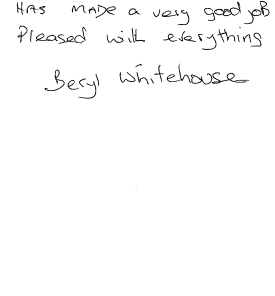 HAS MADE a very good job
Pleased with everything
Beryl Whitehouse